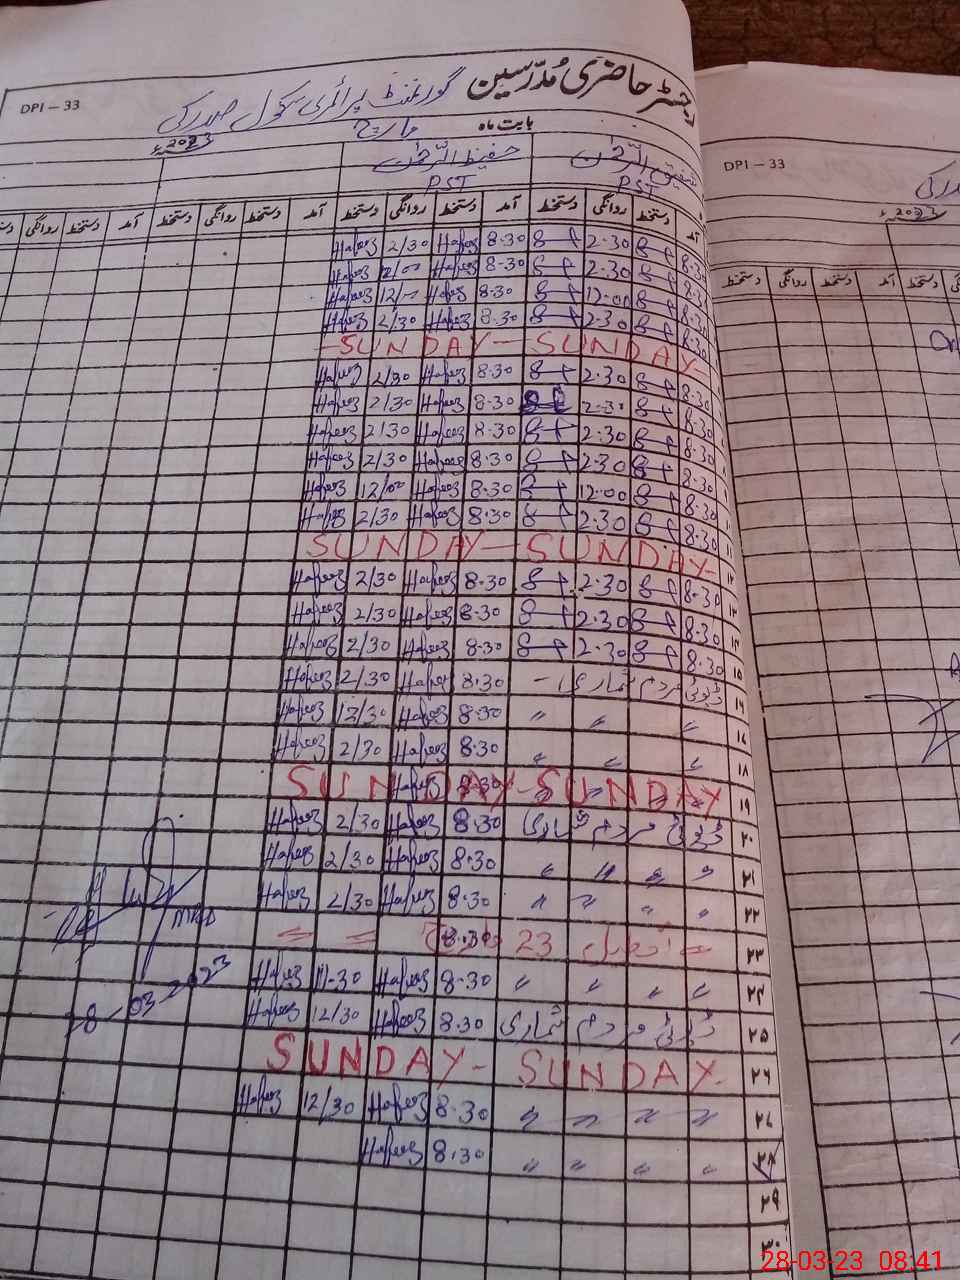 DPI – 33
رجسٹر حاضری مُدرّسین گورنمنٹ پرائمری سکول
بابت ماہ مارچ 2023ء
شفیق الرّحمٰن حفیظ الرّحمٰن
PST PST
آمد دستخط روانگی دستخط آمد دستخط روانگی دستخط آمد دستخط روانگی دستخط آمد دستخط روانگی
Hafeez 2/30 Hafeez 8.30 2.30 8.30
Hafeez 12/00 Hafeez 8.30 2.30 8.30
Hafeez 12/– Hafeez 8.30 12:00 8.30
Hafeez 2/30 Hafeez 8.30 2.30 8.30
–SUNDAY–SUNDAY–
Hafeez 2/30 Hafeez 8.30 2.30 8.30
Hafeez 2/30 Hafeez 8.30 2.30 8.30
Hafeez 2/30 Hafeez 8.30 2.30 8.30
Hafeez 2/30 Hafeez 8.30 2.30 8.30
Hafeez 12/00 Hafeez 8.30 12:00 8.30
Hafeez 2/30 Hafeez 8.30 2.30 8.30 ۱۱
SUNDAY–SUNDAY– ۱۲
Hafeez 2/30 Hafeez 8.30 2.30 8.30 ۱۳
Hafeez 2/30 Hafeez 8.30 2.30 8.30 ۱۴
Hafeez 2/30 Hafeez 8.30 2.30 8.30 ۱۵
Hafeez 2/30 Hafeez 8.30 ڈیوٹی مردم شماری – ۱۶
Hafeez 12/30 Hafeez 8.30 〃 〃 〃 ۱۷
Hafeez 2/30 Hafeez 8.30 〃 〃 〃 ۱۸
SUNDAY–SUNDAY ۱۹
Hafeez 2/30 Hafeez 8.30 ڈیوٹی مردم شماری ۲۰
Hafeez 2/30 Hafeez 8.30 〃 〃 〃 〃 ۲۱
Hafeez 2/30 Hafeez 8.30 〃 〃 〃 〃 ۲۲
8.30 تعطیل 23 مارچ ۲۳
Hafeez 11-30 Hafeez 8-30 〃 〃 〃 〃 ۲۴
Hafeez 12/30 Hafeez 8.30 ڈیوٹی مردم شماری ۲۵
SUNDAY– SUNDAY– ۲۶
Hafeez 12/30 Hafeez 8.30 〃 〃 〃 〃 ۲۷
Hafeez 8.30 〃 〃 〃 〃 ۲۸
۲۹
۳۰
DPI – 33
2023ء
دستخط روانگی دستخط آمد دستخط
28-03-23 08:41